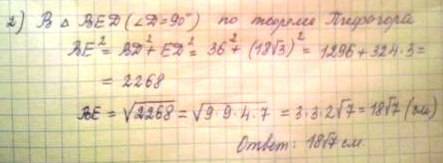 2) В △ BED (∠D=90°) по теореме Пифагора
BE² = BD² + ED² = 36² + (18√3)² = 1296 + 324·3 =
= 2268
BE = √2268 = √9·9·4·7 = 3·3·2√7 = 18√7 (см)
Ответ: 18√7 см.